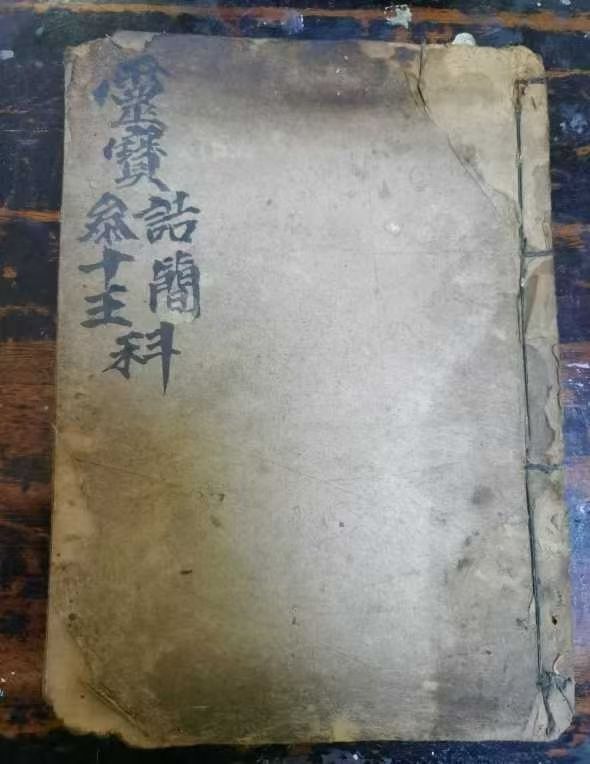 靈寶
誥簡
叅十王
科